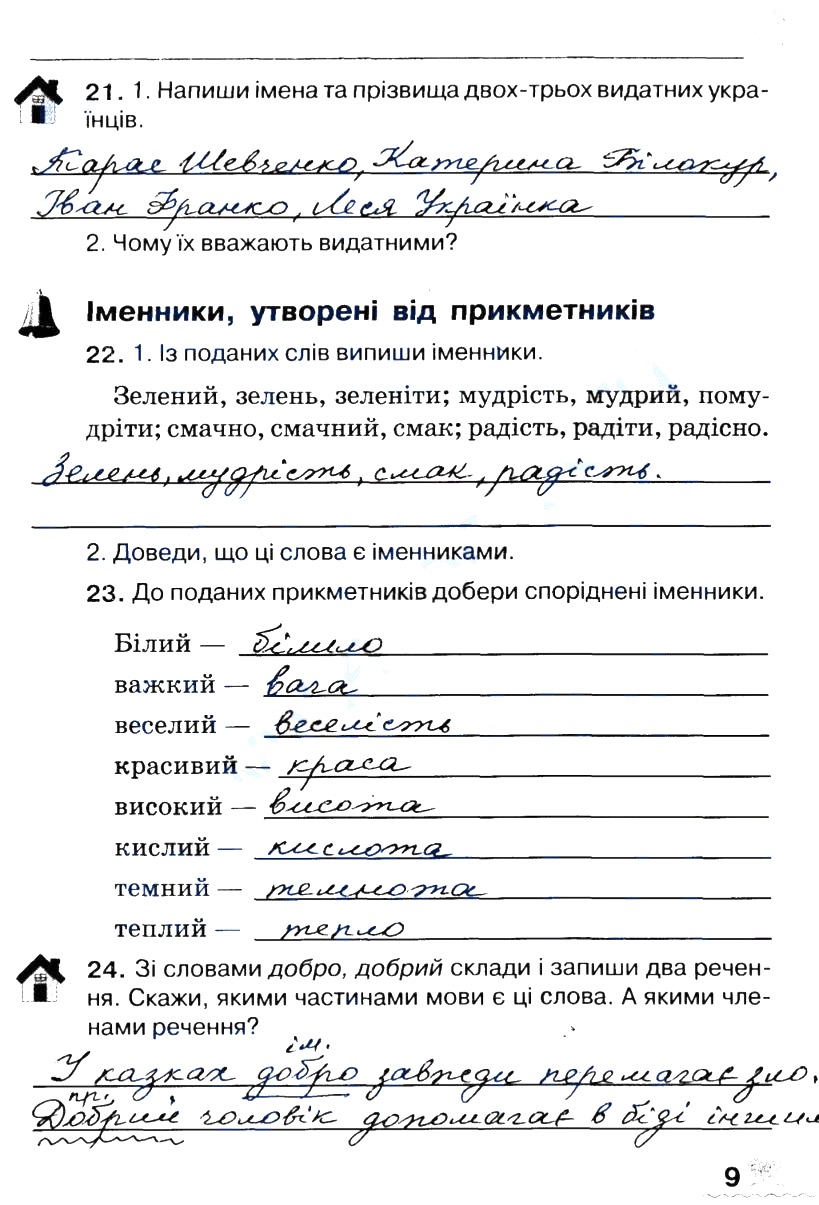 21. 1. Напиши імена та прізвища двох-трьох видатних укра-
їнців.
Тарас Шевченко, Катерина Білокур,
Іван Франко, Леся Українка
2. Чому їх вважають видатними?
Іменники, утворені від прикметників
22. 1. Із поданих слів випиши іменники.
Зелений, зелень, зеленіти; мудрість, мудрий, пому-
дріти; смачно, смачний, смак; радість, радіти, радісно.
Зелень, мудрість, смак, радість.
2. Доведи, що ці слова є іменниками.
23. До поданих прикметників добери споріднені іменники.
Білий — білило
важкий — вага
веселий — веселість
красивий — краса
високий — висота
кислий — кислота
темний — темнота
теплий — тепло
24. Зі словами добро, добрий склади і запиши два речен-
ня. Скажи, якими частинами мови є ці слова. А якими чле-
нами речення?
ім.
У казках добро завжди перемагає зло.
пр.
Добрий чоловік допомагає в біді іншим
9